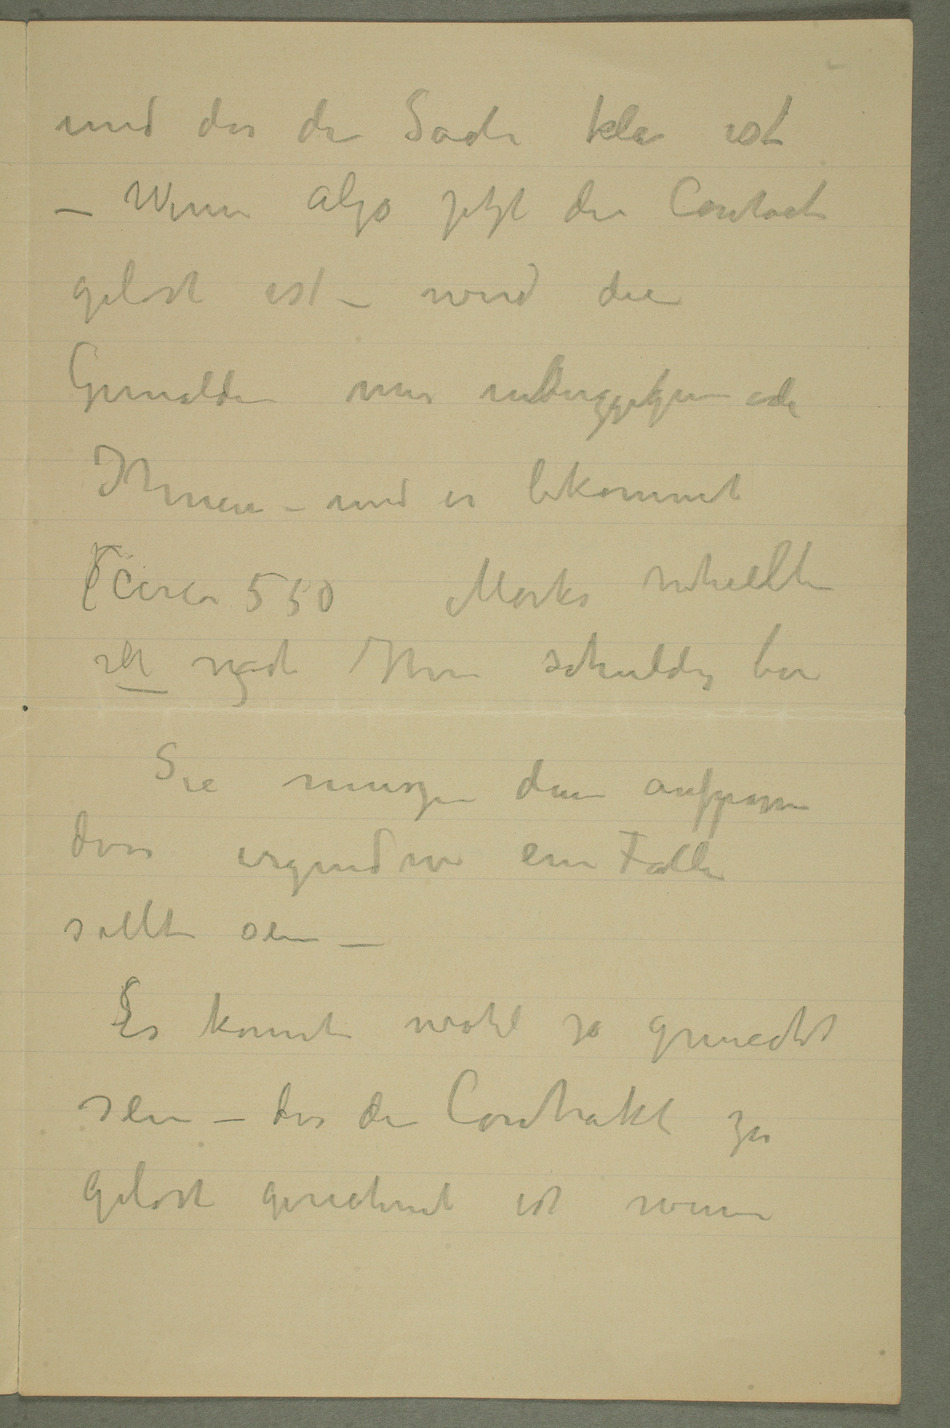 und das die Sache klar ist
– Wenn also jetzt der Contract
gelöst ist – wird die
Gemälde mir oder
Ihnen – und er bekommt
circa 550 Marks
ich noch Ihm schuldig bin
Sie muszen dann aufpassen
das irgendwo ein Falle
sollte sein –
Es konnte wohl so gemacht
sein – das der Contrakt
gelöst ist wenn